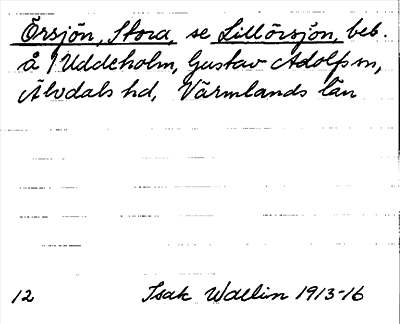 Örsjön, Stora, se Lillörsjön, beb.
å 1 Uddeholm, Gustav Adolfs sn,
Älvdals hd, Värmlands län
12 Isak Wallin 1913-16